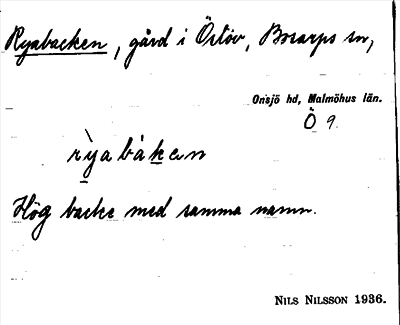 Ryabacken, gård i Östöv, Bosarps sn,
Onsjö hd, Malmöhus län.
Ö 9.
rỳa bàken
Hög backe med samma namn.
NILS NILSSON 1936.